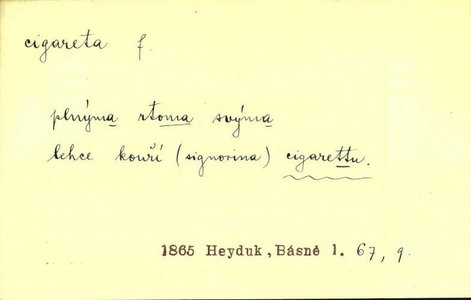 cigareta f.
plnýma rtoma svýma
lehce kouří (signorina) cigarettu.
1865 Heyduk, Básně 1. 67, 9.